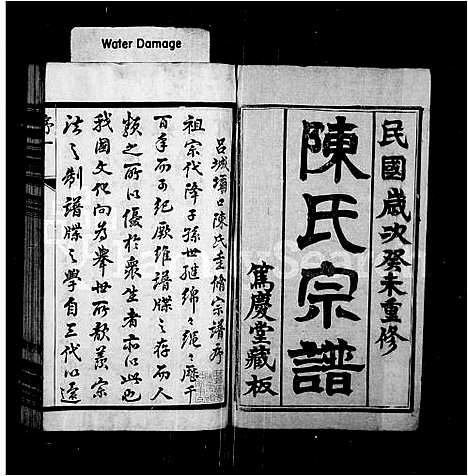 Water Damage
民國歲次癸未重修
陳氏宗譜
篤慶堂藏板
呂城壩口陳氏重脩宗譜序
祖宗代降子孫世繼綿々繩々歷千
百年而可紀厥維譜牒之存而人
類之所以優於衆生者亦以此也
我國文化向為舉世所歆羨宗
法之制譜牒之學自三代以還
序一